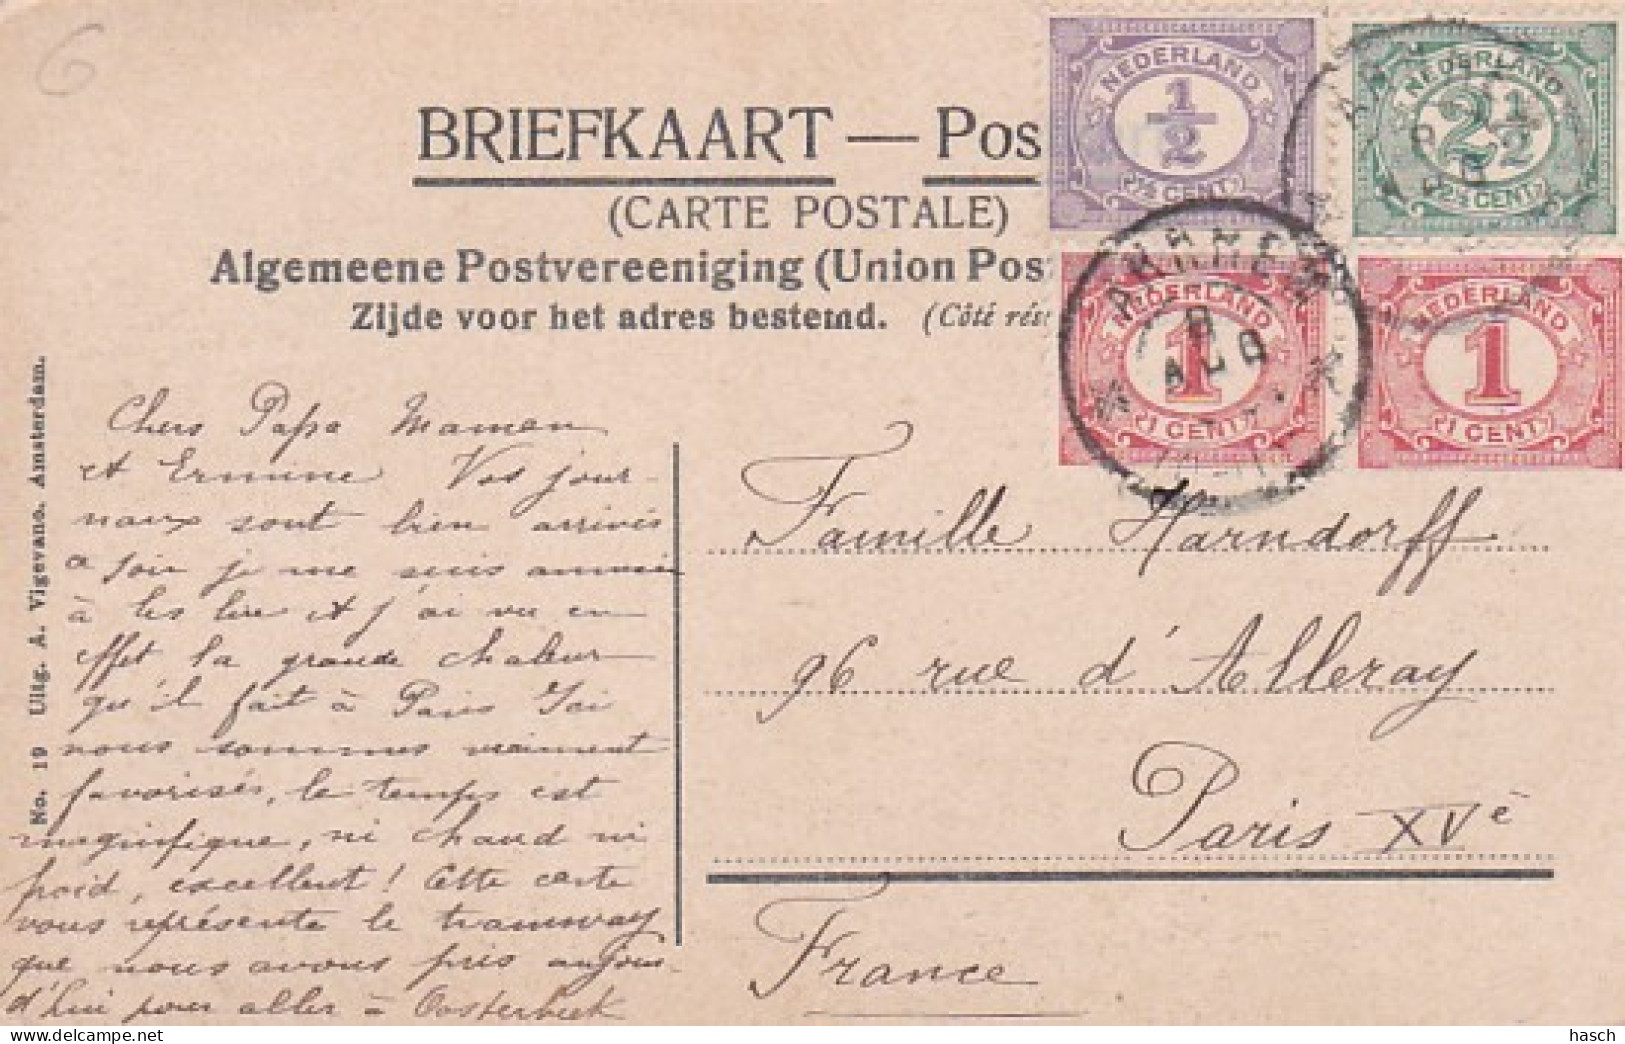 6
BRIEFKAART — Pos
(CARTE POSTALE)
Algemeene Postvereeniging (Union Pos
Zijde voor het adres bestemd. (Côté rés
NEDERLAND
1/2
½ CENT
NEDERLAND
2 1/2
2½ CENT
NEDERLAND
1
1 CENT
NEDERLAND
1
1 CENT
ARNHEM
No. 19 Uitg. A. Vigevano. Amsterdam.
Chers Papa Maman
et Ermine Vos jour-
naux sont bien arrivés
je me suis
à les lire et j'ai vu en
effet la grande chaleur
qu'il fait à Paris Ici
nous sommes vraiment
favorisés, le temps est
magnifique, ni chaud ni
froid, excellent! Cette carte
vous représente le tramway
que nous avons pris aujour-
d'hui pour aller à Oosterbeek
Famille Harndorff
96 rue d'Alleray
Paris XVè
France
hasch